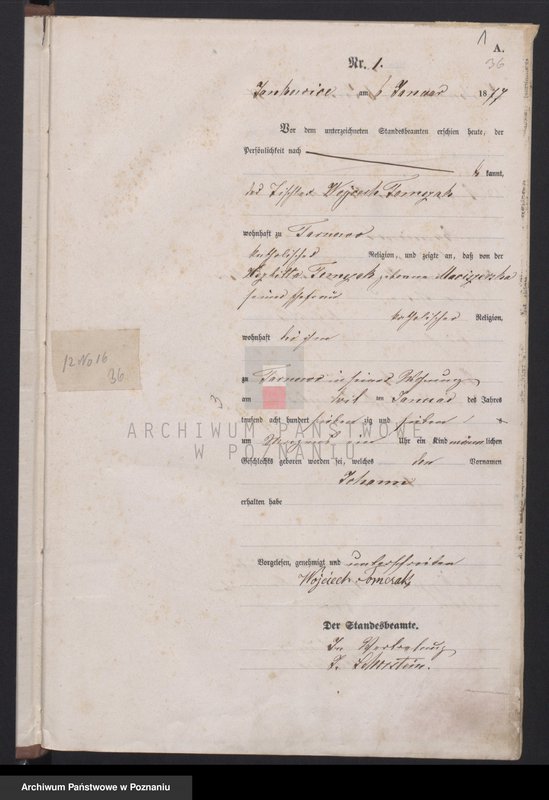 1
A.
36
Nr. 1.
am 6 Januar 1877
Vor dem unterzeichneten Standesbeamten erschien heute, der
Persönlichkeit nach
kannt,
Wojciech Tomczak
wohnhaft zu Tarnowo
katholischer Religion, und zeigte an, daß von der
Tomczak geborene
seiner Ehefrau
katholischer Religion,
wohnhaft bei ihm
zu Tarnowo in seiner Wohnung
am ten Januar des Jahres
tausend acht hundert sieben zig und sieben
um Uhr ein Kind männlichen
Geschlechts geboren worden sei, welches den Vornamen
Johann
erhalten habe
Vorgelesen, genehmigt und unterschrieben
Wojciech Tomczak
Der Standesbeamte.
In Vertretung
12 No 16
36
3
ARCHIWUM PAŃSTWOWE
W POZNANIU
Archiwum Państwowe w Poznaniu